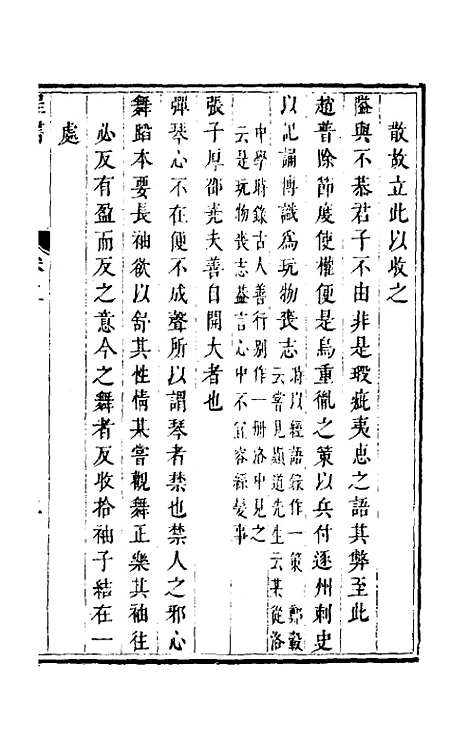 散故立此以收之
隘與不恭君子不由非是瑕疵夷惠之語其弊至此
趙普除節度使權便是烏重胤之策以兵付逐州刺史
以記誦博識為玩物喪志
時以經語錄作一策 鄭轂
云嘗見顯道先生云某從洛
中學時錄古人善行別作一册洛中見之
云是玩物喪志蓋言心中不宜容絲髮事
張子厚邵堯夫善自開大者也
彈琴心不在便不成聲所以謂琴者禁也禁人之邪心
舞蹈本要長袖欲以舒其性情某嘗觀舞正樂其袖往
必反有盈而反之意今之舞者反收拾袖子結在一
處